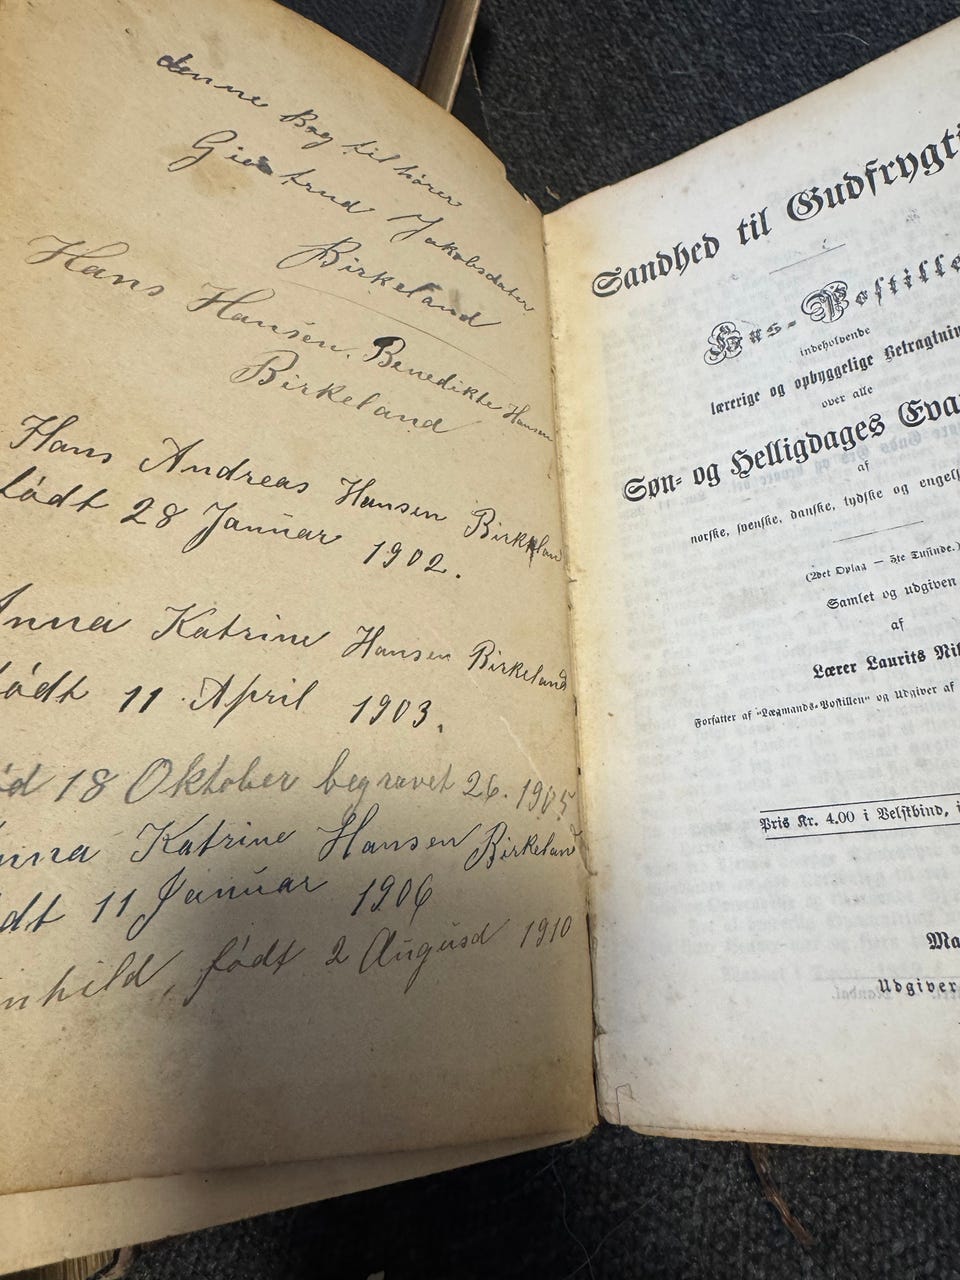 denne Bog tilhører
Giertrud Jakobsdater
Birkeland
Hans Hansen. Benedikte Hansen
Birkeland
Hans Andreas Hansen Birkeland
født 28 Januar 1902.
Anna Katrine Hansen Birkeland
født 11 April 1903.
død 18 Oktober begravet 26. 1905
Anna Katrine Hansen Birkeland
født 11 Januar 1906
født 2 Augusd 1910
Sandhed til Gudfrygti
Hus-Postille
indeholdende
lærerige og opbyggelige Betragtnin
over alle
Søn- og Helligdages Eva
af
norske, svenske, danske, tydske og engels
(2det Oplag — 5te Tusinde.)
Samlet og udgiven
af
Lærer Laurits Nil
Forfatter af "Lægmands-Postillen" og Udgiver af
Pris Kr. 4.00 i Velskbind, i
Ma
Udgiver